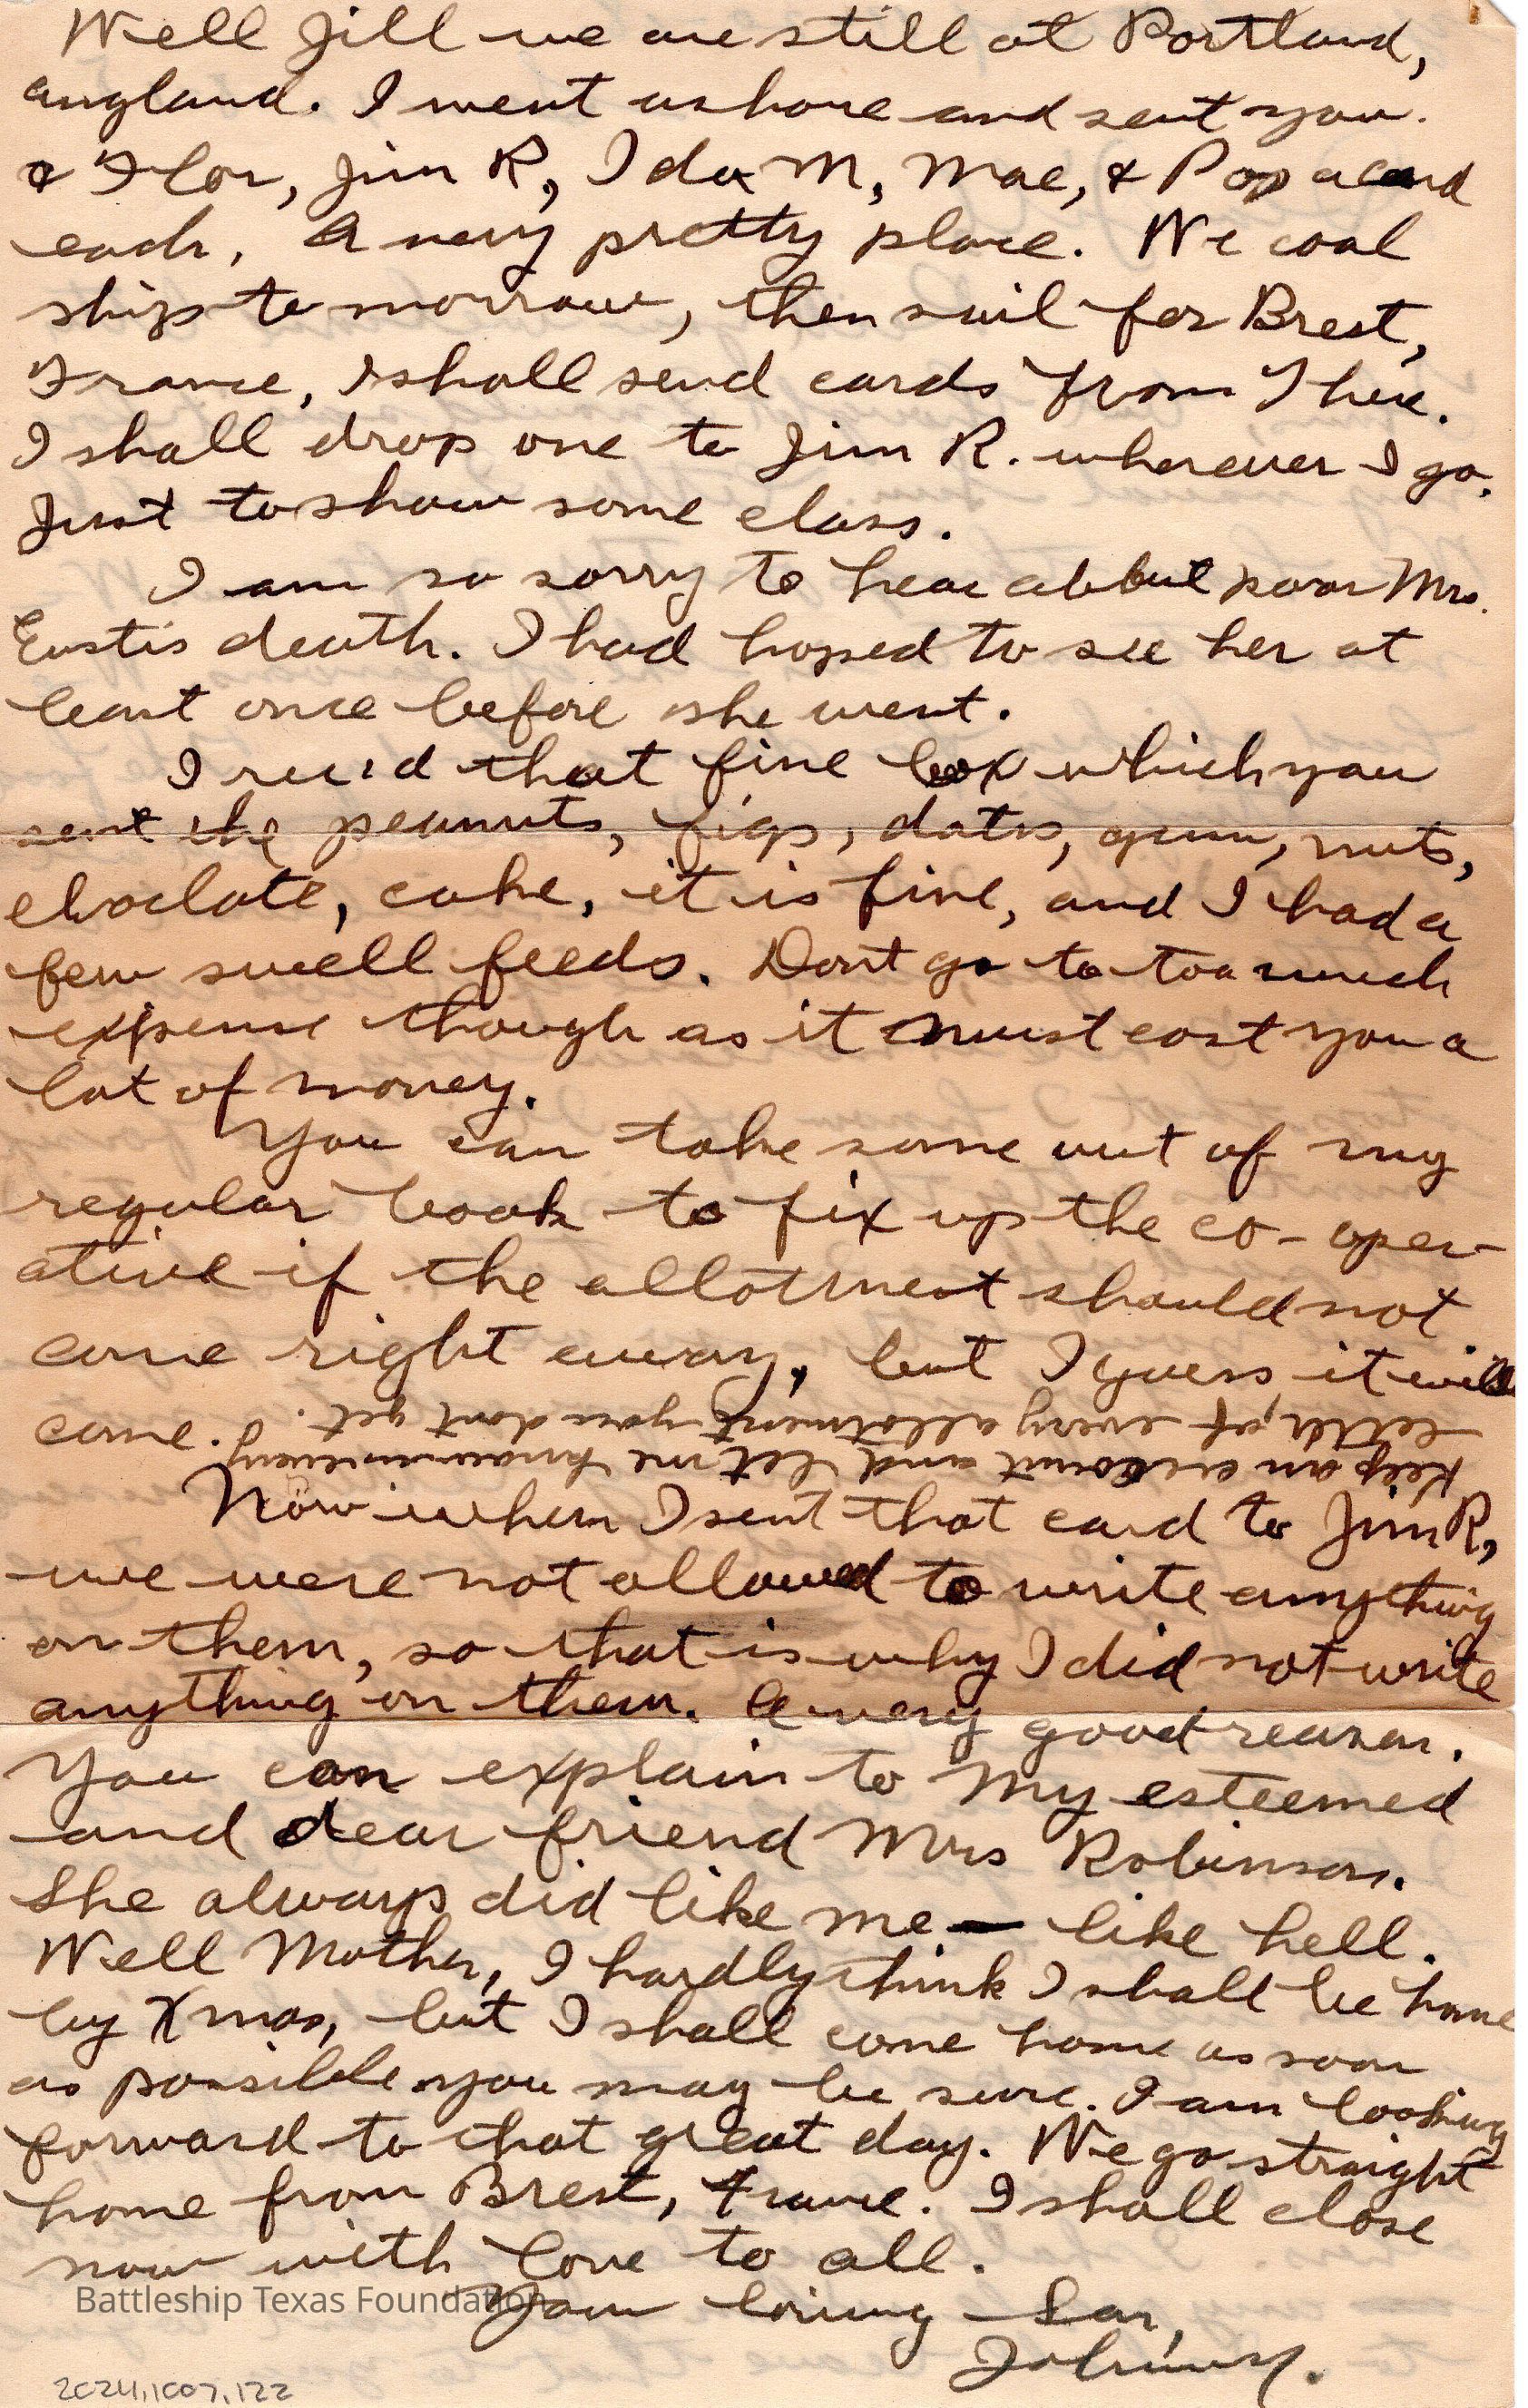 Well Jill we are still at Portland,
England. I went ashore and sent you.
& Flor, Jim R, Ida M, Mae, & Pop a card
each, A very pretty place. We coal
ship to morrow, then sail for Brest,
France, I shall send cards from There.
I shall drop one to Jim R. wherever I go.
Just to show some class.
I am so sorry to hear abbut poor Mrs.
Eustis death. I had hoped to see her at
least once before she went.
I rec'd that fine box which you
sent the peanuts, figs, dates, gum, nuts,
choclate, cake, it is fine, and I had a
few swell feeds. Dont go to too much
expense though as it must cost you a
lot of money.
You can take some out of my
regular book to fix up the co-oper-
ative if the allotment should not
come right away, but I guess it will
come.
Keep an account and let me know in every
letter, of every allotment you dont get.
Now when I sent that card to Jim R,
we were not allowed to write anything
on them, so that is why I did not write
anything on them. A very good reason.
You can explain to My esteemed
and dear friend Mrs Robinson.
She always did like me — like hell.
Well Mother, I hardly think I shall be home
by Xmas, but I shall come home as soon
as possible you may be sure. I am looking
forward to that great day. We go straight
home from Brest, France. I shall close
now with love to all.
Your loving Son,
Johnny.
Battleship Texas Foundation
2024.1007.122